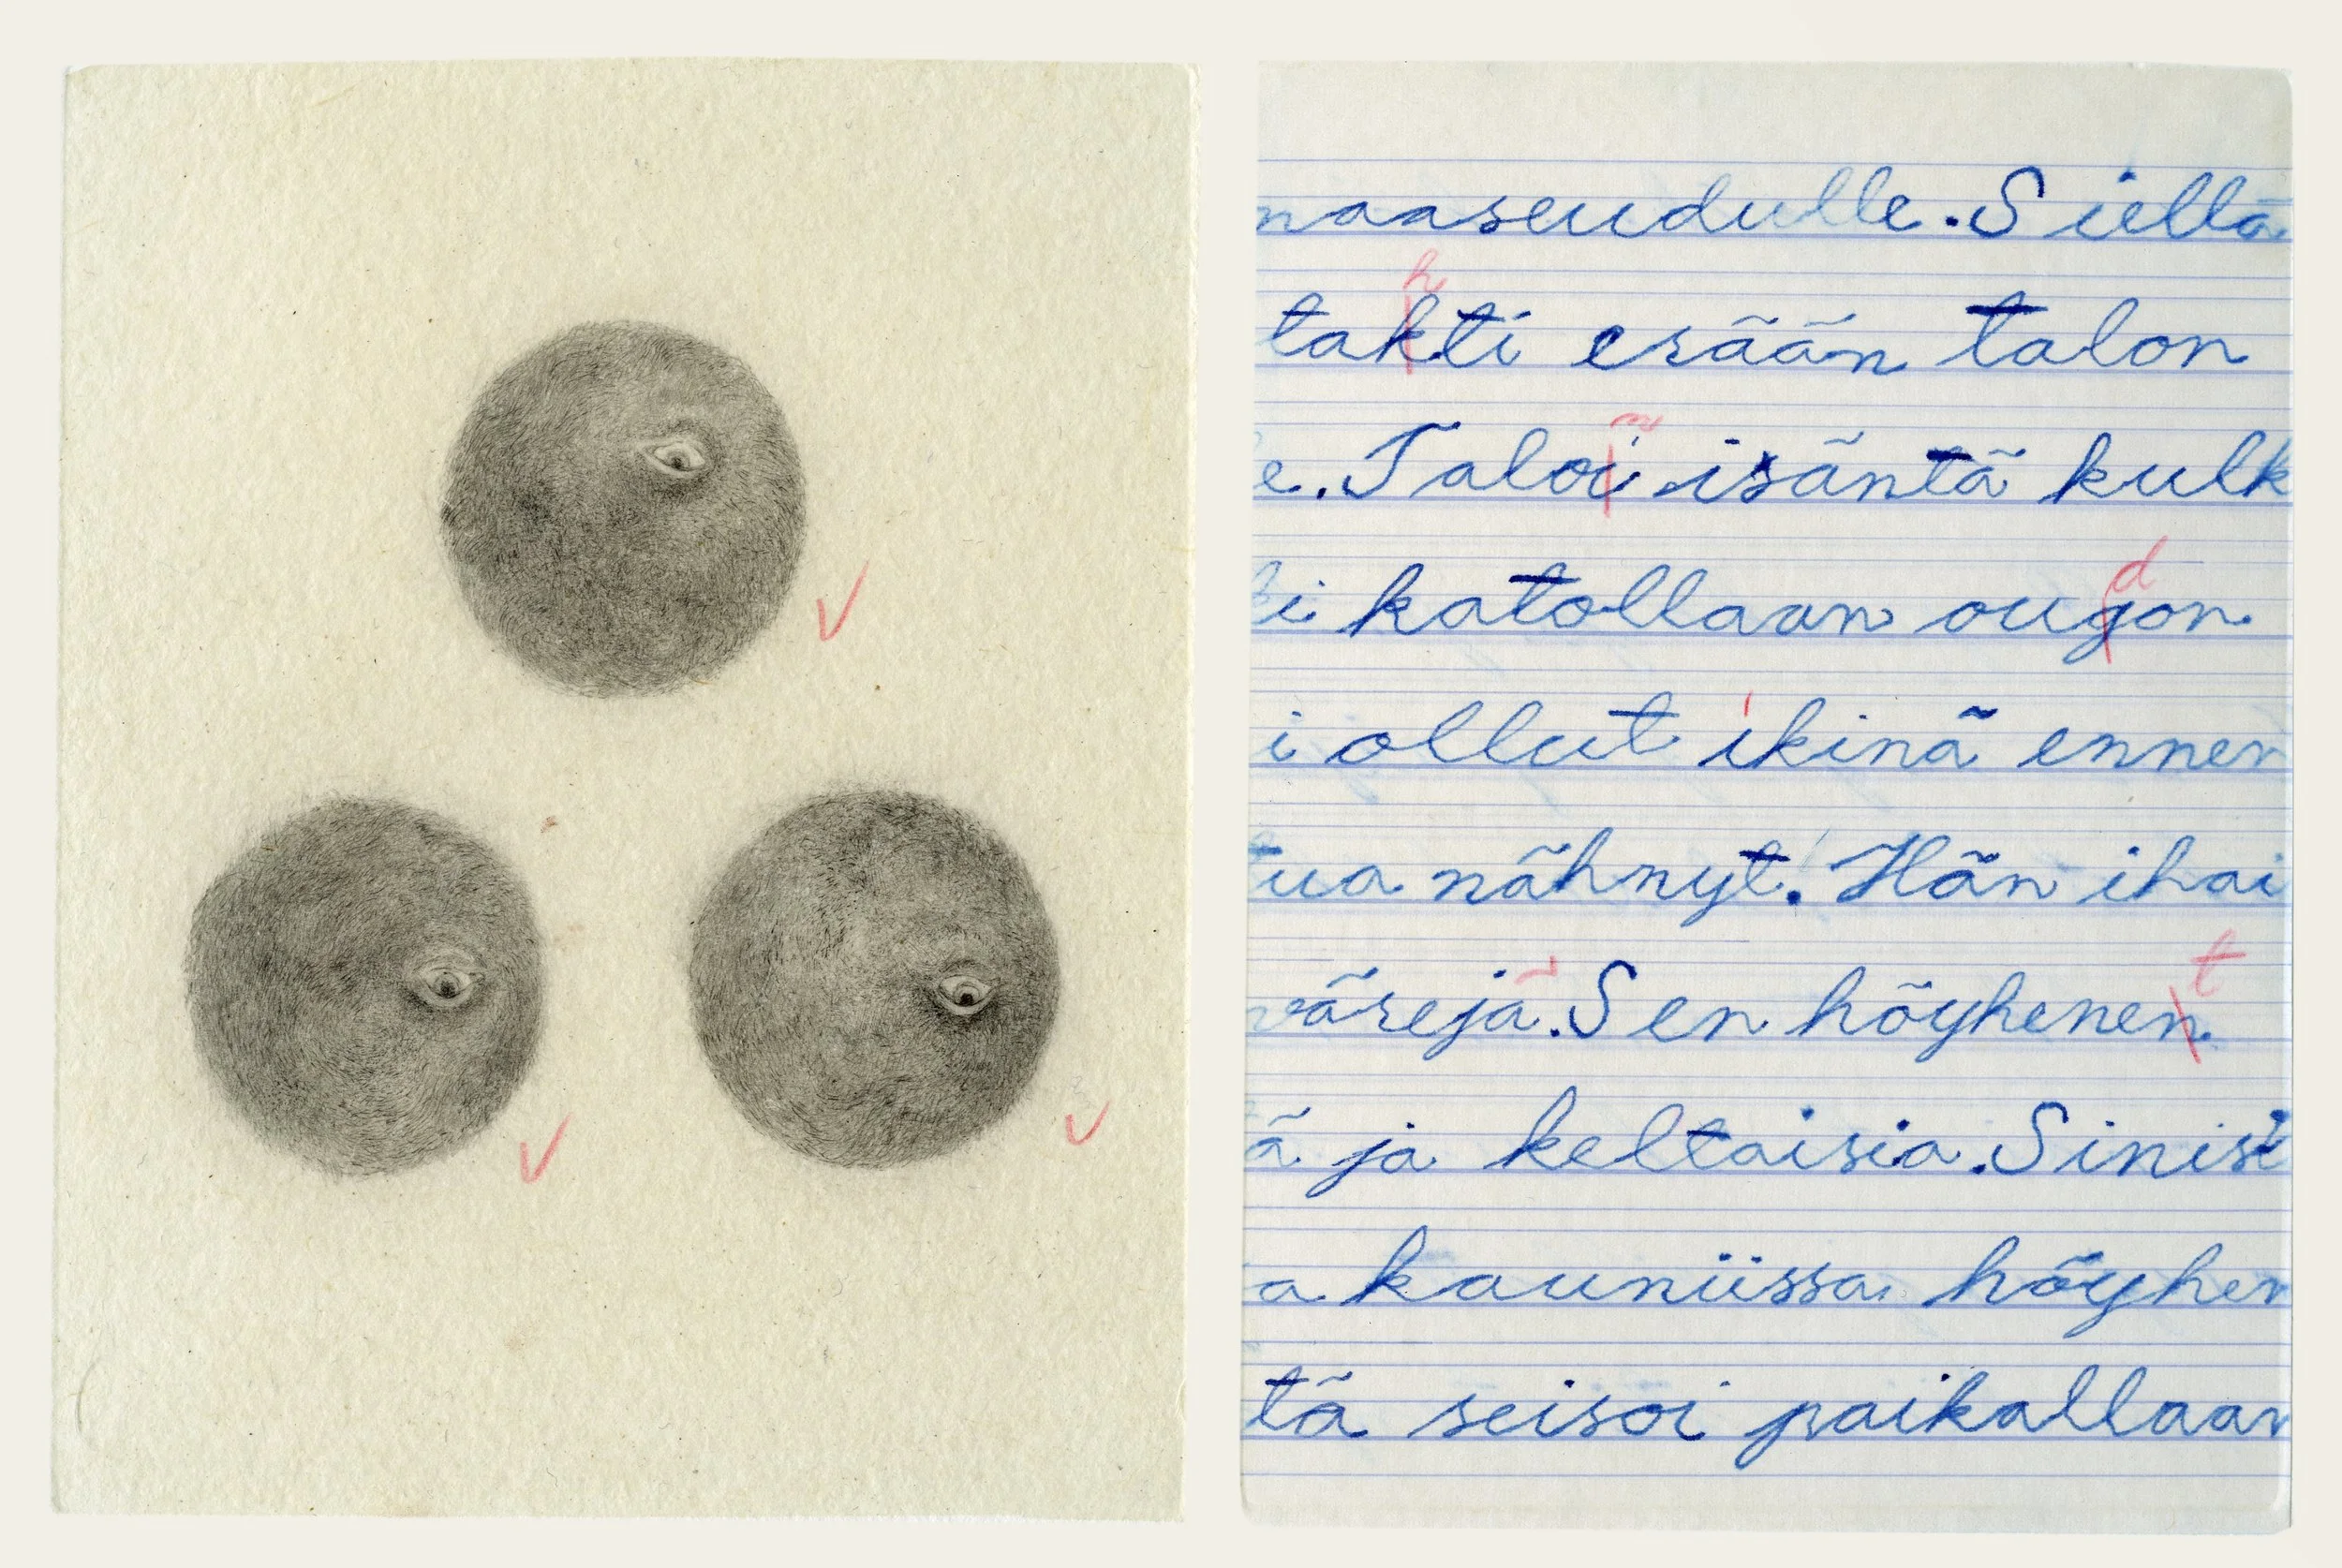 maaseudulle. Siellä
h
takti erään talon
n
e. Taloi isäntä kulk
d
i katollaan ougon
i ollut ikinä ennen
tua nähnyt. Hän ihai
t
värejä. Sen höyhenen
ä ja keltaisia. Sinisi
a kauniissa höyhen
tä seisoi paikallaan